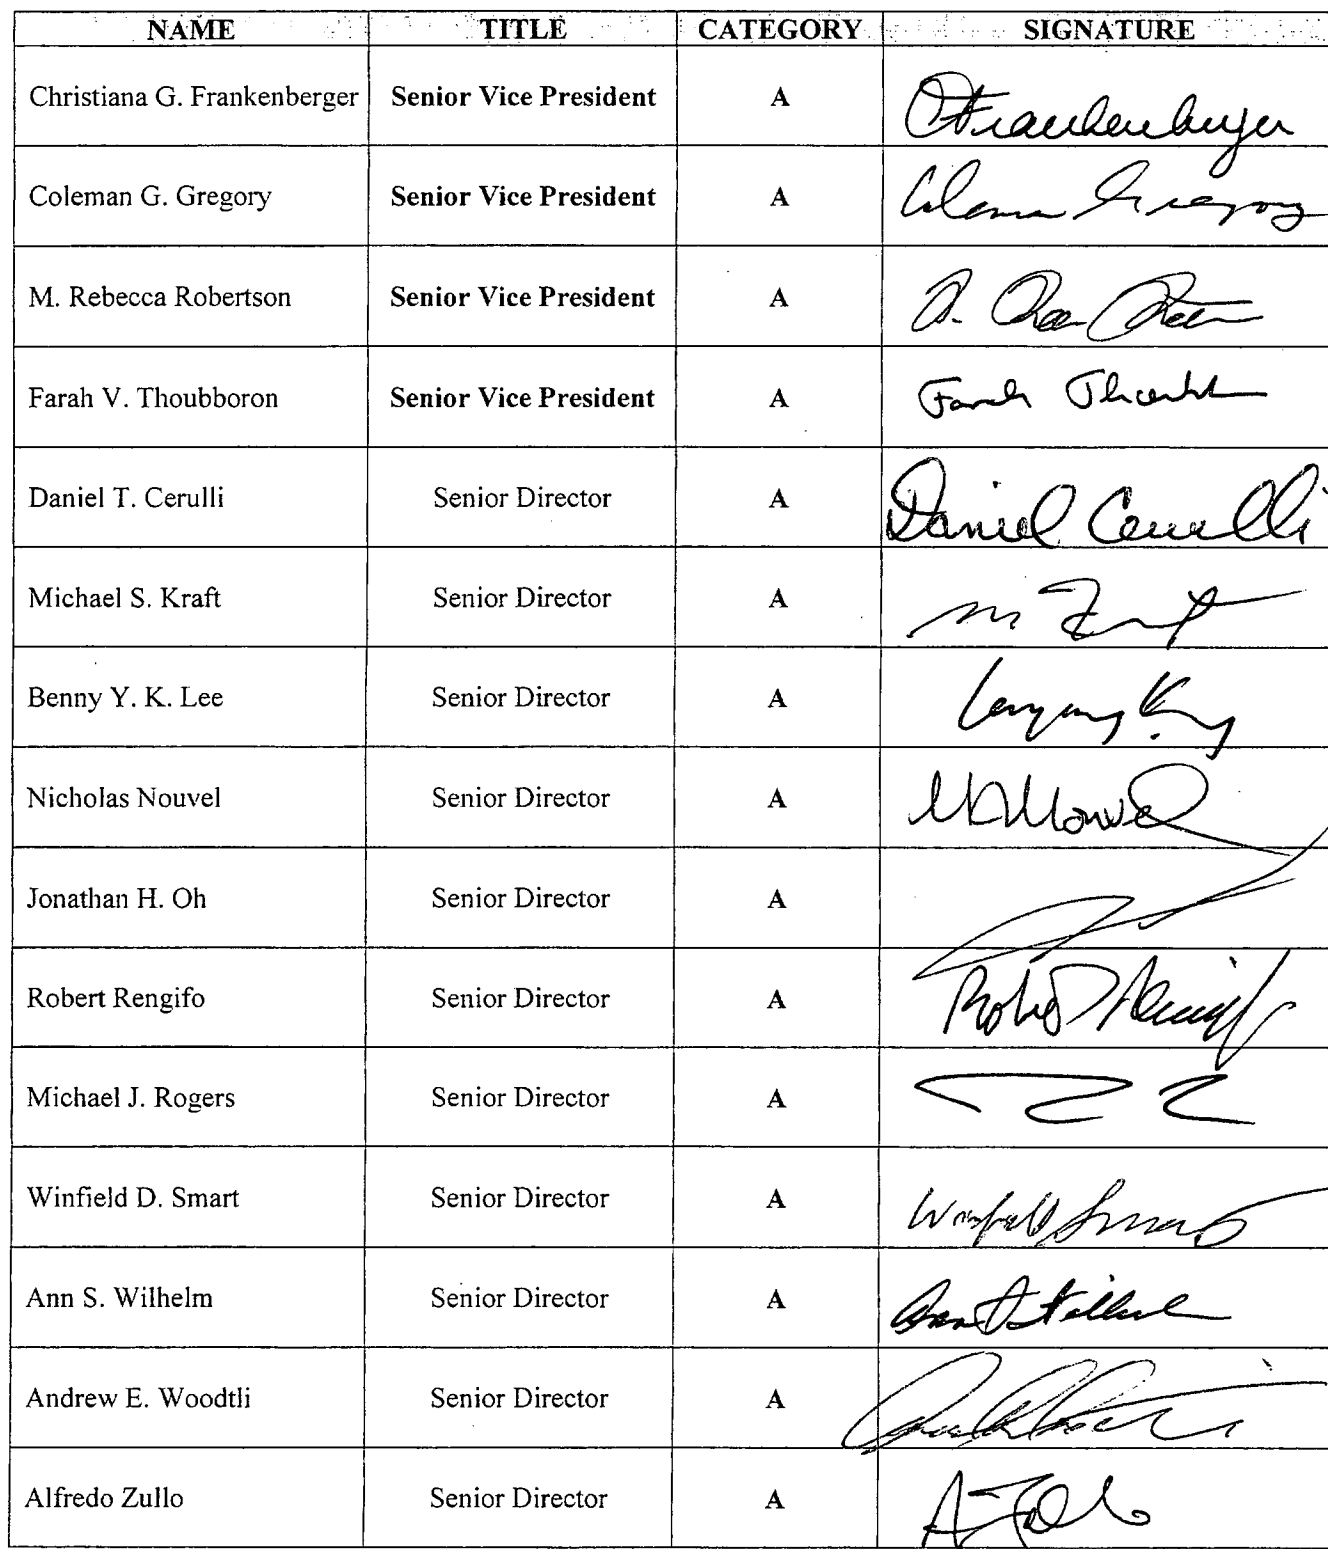 NAME TITLE CATEGORY SIGNATURE
Christiana G. Frankenberger Senior Vice President A CFrankenberger
Coleman G. Gregory Senior Vice President A Coleman Gregory
M. Rebecca Robertson Senior Vice President A
Farah V. Thoubboron Senior Vice President A Farah
Daniel T. Cerulli Senior Director A Daniel Cerulli
Michael S. Kraft Senior Director A
Benny Y. K. Lee Senior Director A
Nicholas Nouvel Senior Director A
Jonathan H. Oh Senior Director A
Robert Rengifo Senior Director A Robert Rengifo
Michael J. Rogers Senior Director A
Winfield D. Smart Senior Director A Winfield Smart
Ann S. Wilhelm Senior Director A Ann S Wilhelm
Andrew E. Woodtli Senior Director A
Alfredo Zullo Senior Director A A Zullo